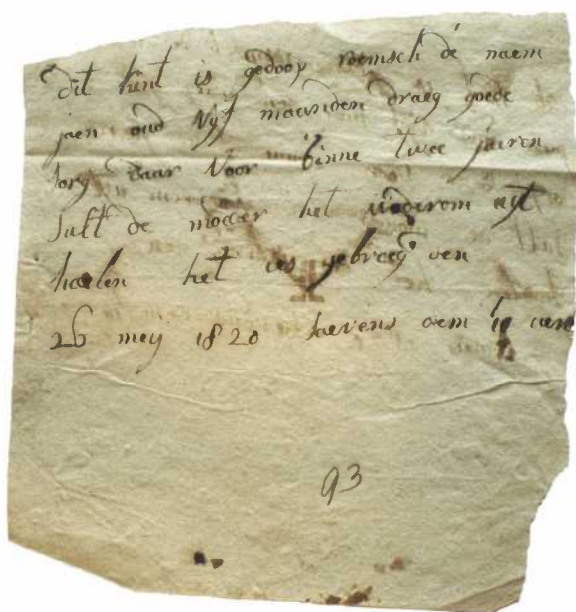 dit kint is gedoop roemsch de naem
jaen oud Vyf maanden draeg goede
sorg daar Voor binne twee jaren
sult de moeder het widerom uyt
haelen het is gebragt den
26 mey 1820 savens oem
93